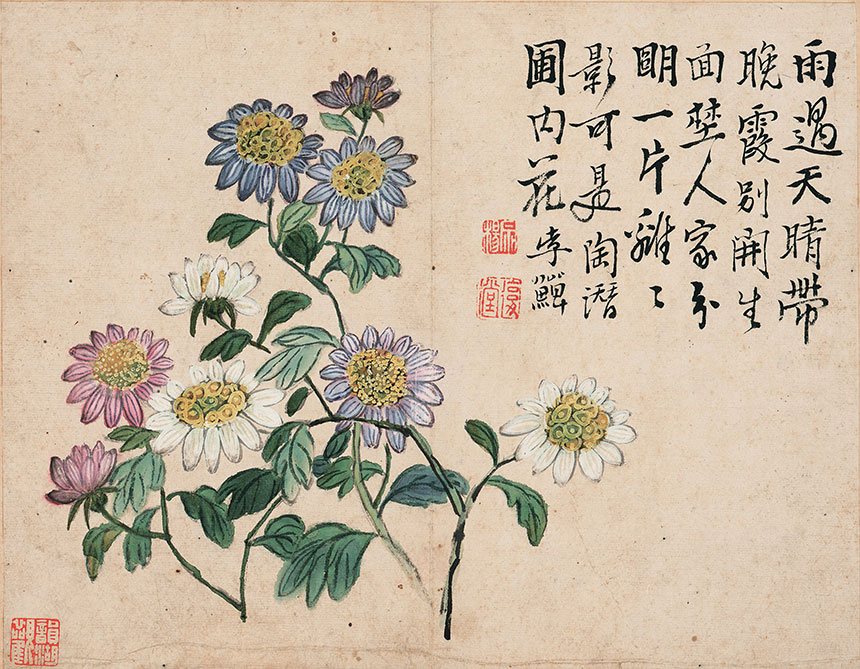 雨過天晴帶
晚霞別開生
面埜人家分
朙一片離〻
影可是陶潛
圃内花李鱓